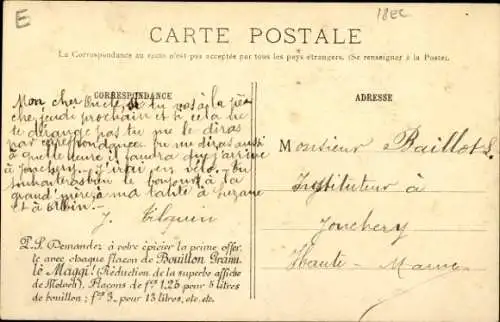 E
18EC
CARTE POSTALE
La Correspondance au recto n'est pas acceptée par tous les pays étrangers. (Se renseigner à la Poste).
CORRESPONDANCE
Mon cher Oncle, si tu vas à la pê-
che jeudi prochain et si cela ne
te dérange pas tu me le diras
par correspondance. Tu me diras aussi
à quelle heure il faudra que j'arrive
à Jonchery. J'irai en vélo. Tu
souhaiteras bien le bonjour à la
grand'mère, à ma tante à Suzane
et à Albin.
J.
P.S. Demandez à votre épicier la prime offer-
te avec chaque flacon de Bouillon Granu-
lé Maggi! (Réduction de la superbe affiche
de Moloch). Flacons de fcs 1.25 pour 5 litres
de bouillon; fcs 3. pour 13 litres, etc. etc.
ADRESSE
Monsieur Baillot S.
Instituteur à
Jonchery
Haute-Marne